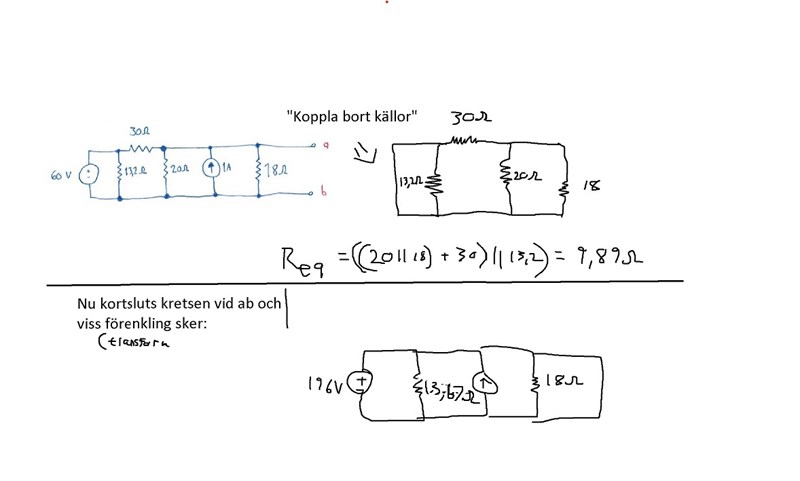 "Koppla bort källor"
30Ω
30Ω
a
60 V
13,2Ω
20Ω
1A
18Ω
b
13,2Ω
20Ω
18
Req = ((20||18) + 30) || 13,2) = 9,89Ω
Nu kortsluts kretsen vid ab och
viss förenkling sker:
(transform
196V
13,67Ω
18Ω